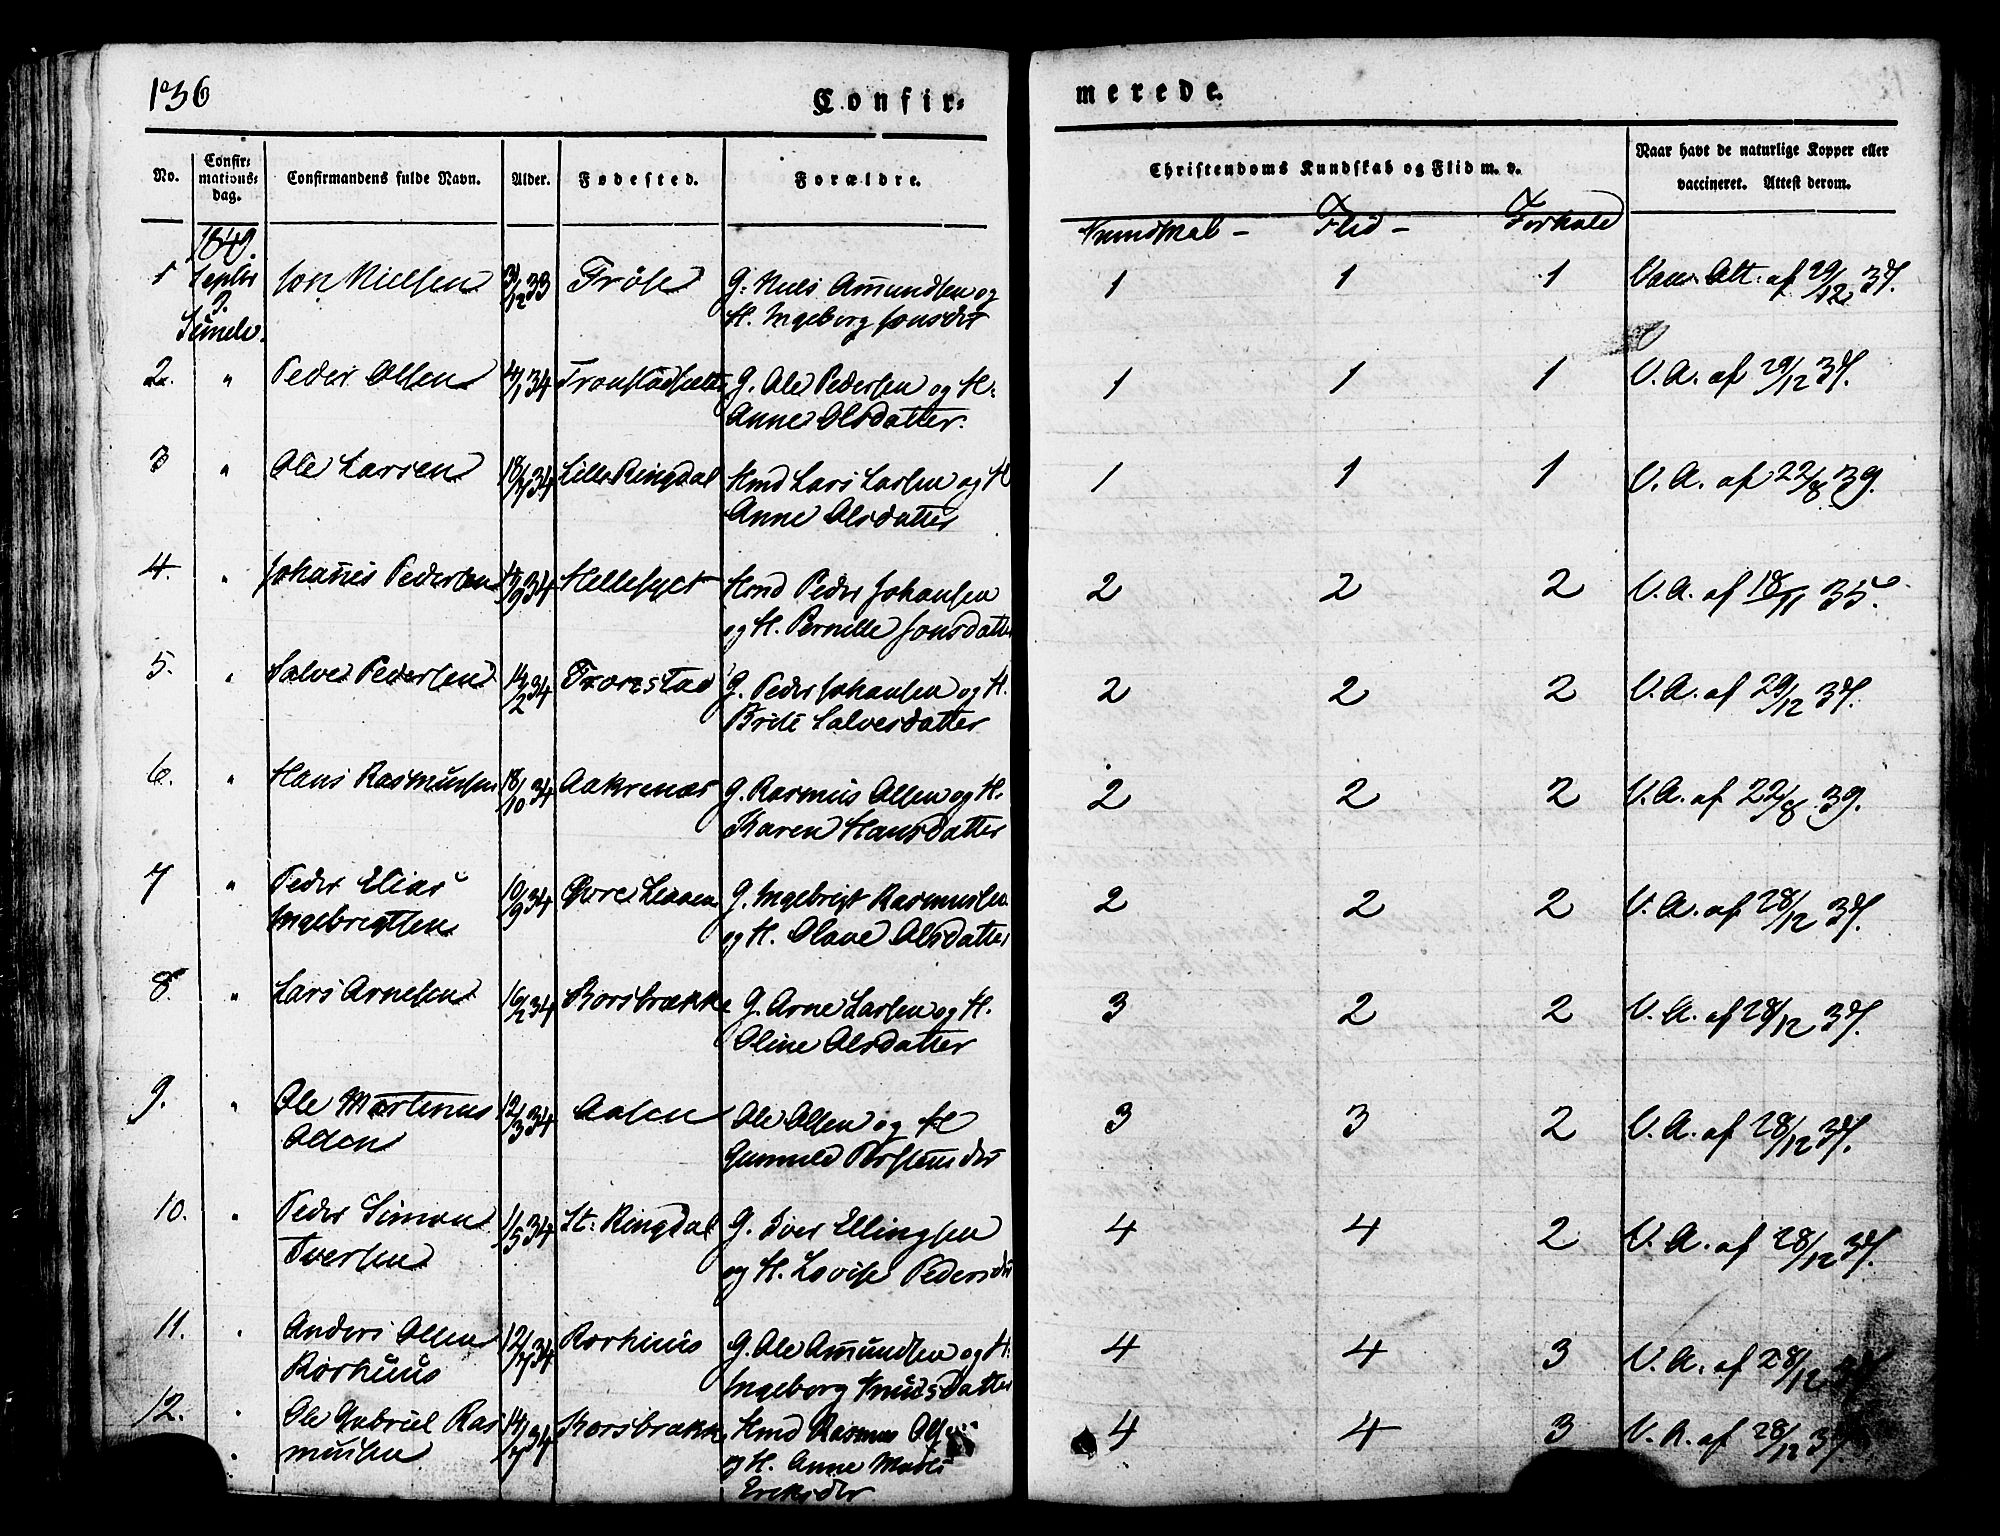 136
Confir=
merede.
No.
Confir=
mations=
dag.
Confirmandens fulde Navn.
Alder.
Fødested.
Forældre.
Christendoms Kundskab og Flid m. v.
Naar havt de naturlige Kopper eller
vaccineret. Attest derom.
Kundskab - Flid - Forhold
1849.
1 Septbr Jon Nielsen 31/12 33 G. Niels Amundsen og 1 1 1 Vacc. Att. af 29/12 37.
9.
H. Ingeborg Jonsdtr
2. " Peder Olsen 34 G. Ole Pedersen og H. 1 1 1 V. A. af 29/12 37.
Anne Olsdatter.
3 " Ole Larsen 34 Lille Ringdal Hmd Lars Larsen og H 1 1 1 V. A. af 22/8 39.
Anne Olsdatter
4. " Johanes Pedersen 34 Hmd Peder Johansen 2 2 2 V. A. af 18/11 35.
og H. Pernille Jonsdatter
5. " Salve Pedersen 34 Tronstad G. Peder Johansen og H. 2 2 2 V. A. af 29/12 37.
Brite Salvesdatter
6. " Hans Rasmussen 18/10 34 Aakrenæs G. Rasmus Olsen og H. 2 2 2 V. A. af 22/8 39.
Karen Hansdatter
7 " Peder Elias 10/9 34 G. Ingebrigt Rasmussen 2 2 2 V. A. af 28/12 37.
Ingebrigtsen og H. Olave Olsdatter
8. " Lars Arnesen 34 Korsbrække G. Arne Larsen og H. 3 2 2 V. A. af 28/12 37.
Oline Olsdatter
9. " Ole Martinus 12/3 34 Aasen Ole Olsen og H 3 3 2 V. A. af 28/12 37.
Olsen Gunnild
10. " Peder Simon 11/5 34 St: Ringdal G. Iver Ellingsen 4 4 2 V. A. af 28/12 37.
Iversen og H. Lovise Pedersdtr
11. " Anders Olsen 12/7 34 Rørhuus G. Ole Amundsen og H. 4 4 3 V. A. af 28/12 37.
Rørhuus Ingeborg Knudsdatter
12. " Ole Gabriel Ras 14/7 34 Korsbrække Hmd Rasmus 4 4 3 V. A. af 28/12 37.
mussen og H. Anne
Eriksdtr